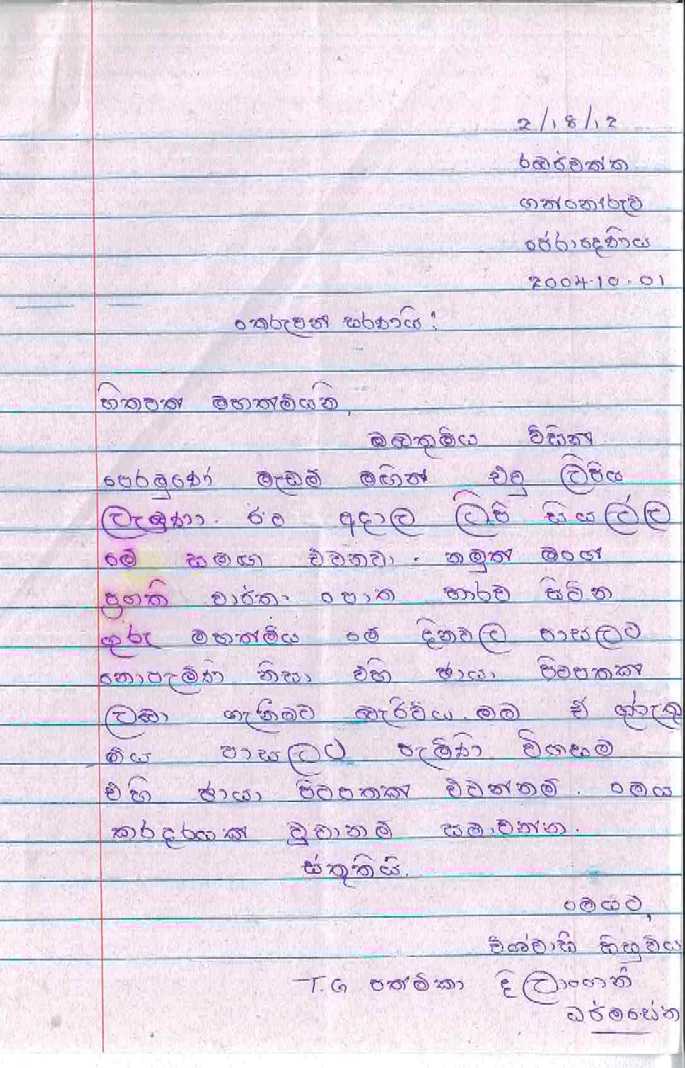 2/18/12
රඹේවත්ත
ගන්නොරුව
පේරාදෙණිය
2004.10.01
තෙරුවන් සරණයි!
හිතවත් මහත්මියනි,
ඔබතුමිය විසින්
පෙරමුණේ මැඩම් මගින් එවූ ලිපිය
ලැබුණා. ඊට අදාල ලිපි සියල්ල
මේ සමග එවනවා. නමුත් මගේ
ප්‍රගති වාර්තා පොත භාරව සිටින
ගුරු මහත්මිය මේ දිනවල පාසලට
නොපැමිණි නිසා එහි ඡායා පිටපතක්
ලබා ගැනීමට බැරිවිය. මම ඒ ගුරුතු
මිය පාසලට පැමිණි විගසම
එහි ඡායා පිටපතක් එවන්නම්. මෙය
කරදරයක් වුනානම් සමාවන්න.
ස්තූතියි.
මෙයට,
විශ්වාසී හිතුවිය
T.G පත්මිකා දිල්හානි
ධර්මසේන